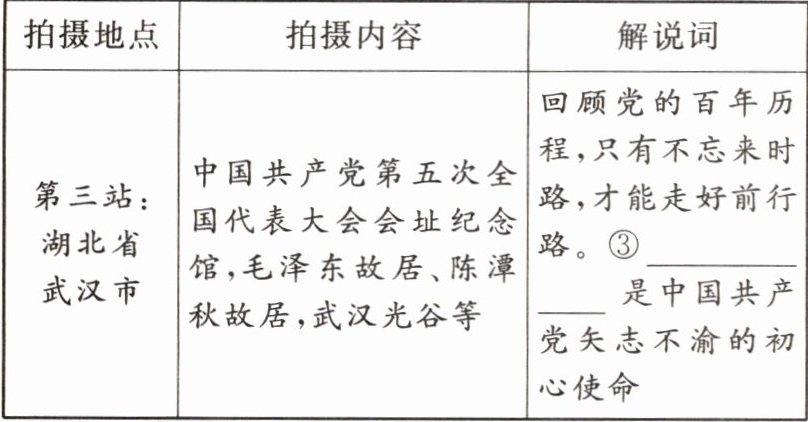 拍摄地点
拍摄内容
解说词
第三站:
湖北省
武汉市
中国共产党第五次全
国代表大会会址纪念
馆,毛泽东故居、陈潭
秋故居,武汉光谷等
回顾党的百年历
程,只有不忘来时
路,才能走好前行
路。③__________
____ 是中国共产
党矢志不渝的初
心使命